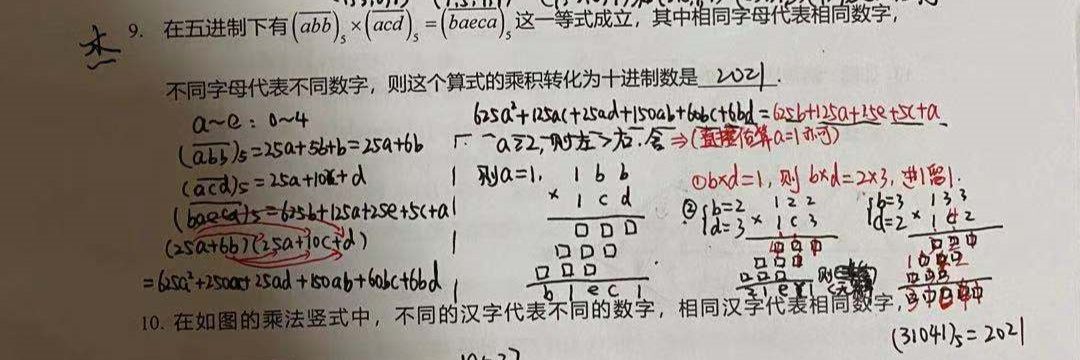 9. 在五进制下有(abb)₅×(acd)₅=(baeca)₅这一等式成立，其中相同字母代表相同数字，
不同字母代表不同数字，则这个算式的乘积转化为十进制数是 2021.
a~e：0~4
625a²+125ac+25ad+150ab+60bc+6bd=625b+125a+25e+5c+a
(abb)₅=25a+5b+b=25a+6b
∵a≥2，则左>右.舍⇒(直接估算a=1亦可)
(acd)₅=25a+10c+d
则a=1,
1 b b
× 1 c d
□ □ □
□ □ □
□ □ □
b 1 e c 1
①b×d=1，则b×d=2×3，进1留1.
(baeca)₅=625b+125a+25e+5c+a
(25a+6b)(25a+10c+d)
=625a²+250ac+25ad+150ab+60bc+6bd
②{b=2
d=3
1 2 2
× 1 c 3
□ □ □
□ □ □
□ □ □
2 1 e
{b=3
d=2
1 3 3
× 1 4 2
10. 在如图的乘法竖式中，不同的汉字代表不同的数字，相同汉字代表相同数字，
(31041)₅=2021